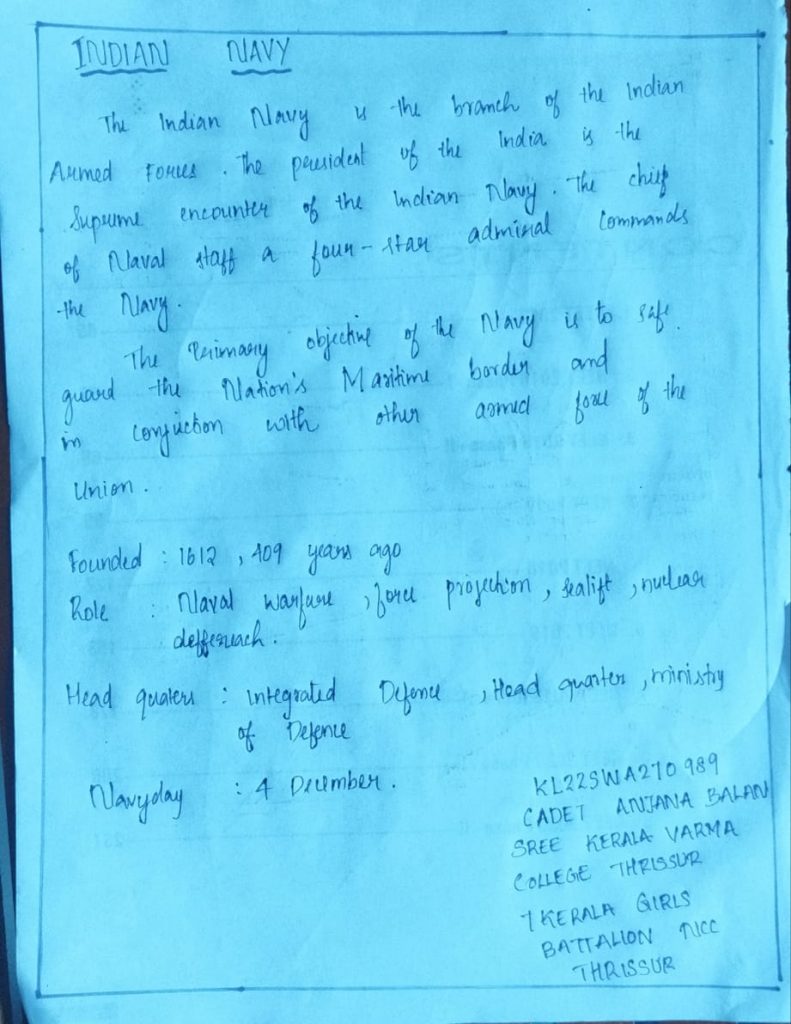 INDIAN NAVY
The Indian Navy is the branch of the Indian
Armed Forces. The president of the India is the
Supreme encounter of the Indian Navy. The chief
of Naval staff a four-star admiral commands
the Navy.
The Primary objective of the Navy is to safe
guard the Nation's Maritime border and
in conjuction with other armed force of the
Union.
Founded : 1612, 409 years ago
Role : Naval warfare, force projection, sealift, nuclear
defferach.
Head quaters : integrated Defence, Head quarter, ministry
of Defence
Navyday : 4 December.
KL22SWA270989
CADET ANJANA BALAN
SREE KERALA VARMA
COLLEGE THRISSUR
7 KERALA GIRLS
BATTALION NCC
THRISSUR